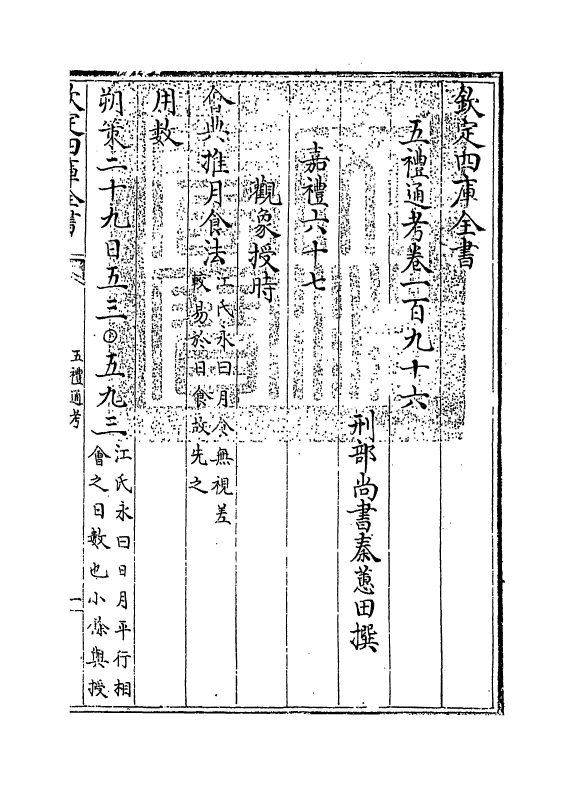 欽定四庫全書
五禮通考卷一百九十六
刑部尚書秦蕙田撰
嘉禮六十七
觀象授時
會典推月食法
江氏永曰月食無視差
較易於日食故先之
用數
朔策二十九日五三〇五九三
江氏永曰日月平行相
會之日數也小餘與授
欽定四庫全書
五禮通考
一